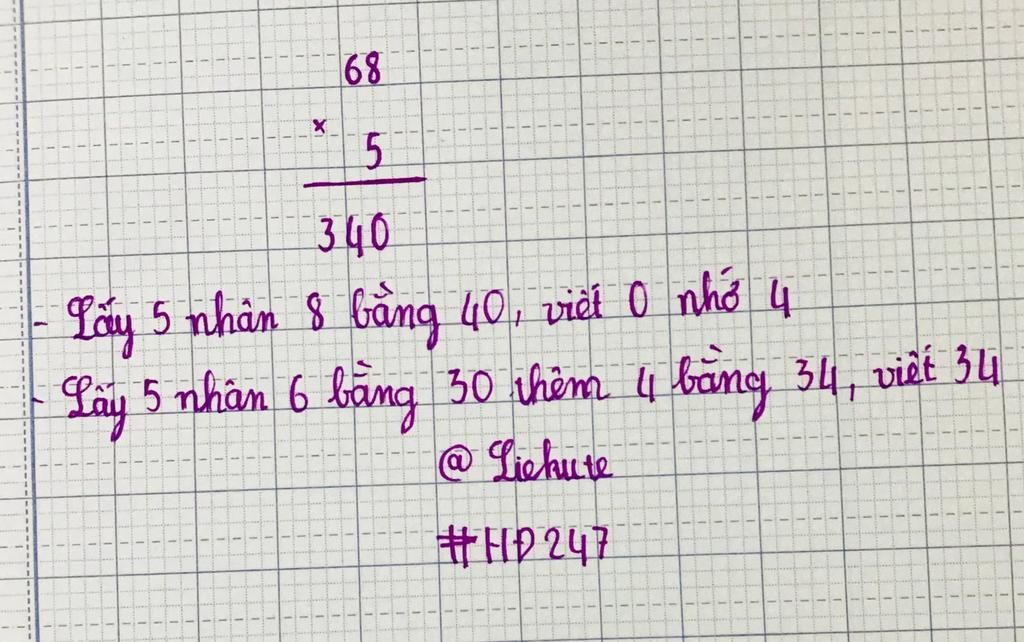 68
×
5
340
- Lấy 5 nhân 8 bằng 40, viết 0 nhớ 4
- Lấy 5 nhân 6 bằng 30 thêm 4 bằng 34, viết 34
@ Liehute
#HĐ247